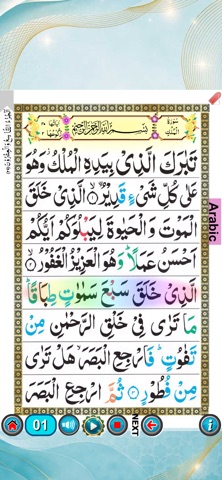 سُوْرَةُ الْمُلْكِ
بِسْمِ اللّٰهِ الرَّحْمٰنِ الرَّحِيْمِ
تَبٰرَكَ الَّذِىْ بِيَدِهِ الْمُلْكُ وَهُوَ
عَلٰى كُلِّ شَىْءٍ قَدِيْرٌ ۙ﴿۱﴾ الَّذِىْ خَلَقَ
الْمَوْتَ وَالْحَيٰوةَ لِيَبْلُوَكُمْ اَيُّكُمْ
اَحْسَنُ عَمَلًا ؕ وَهُوَ الْعَزِيْزُ الْغَفُوْرُ ۙ﴿۲﴾
الَّذِىْ خَلَقَ سَبْعَ سَمٰوٰتٍ طِبَاقًا ؕ
مَا تَرٰى فِىْ خَلْقِ الرَّحْمٰنِ مِنْ
تَفٰوُتٍ ؕ فَارْجِعِ الْبَصَرَ ۙ هَلْ تَرٰى
مِنْ فُطُوْرٍ ﴿۳﴾ ثُمَّ ارْجِعِ الْبَصَرَ
Arabic
01
NEXT
i